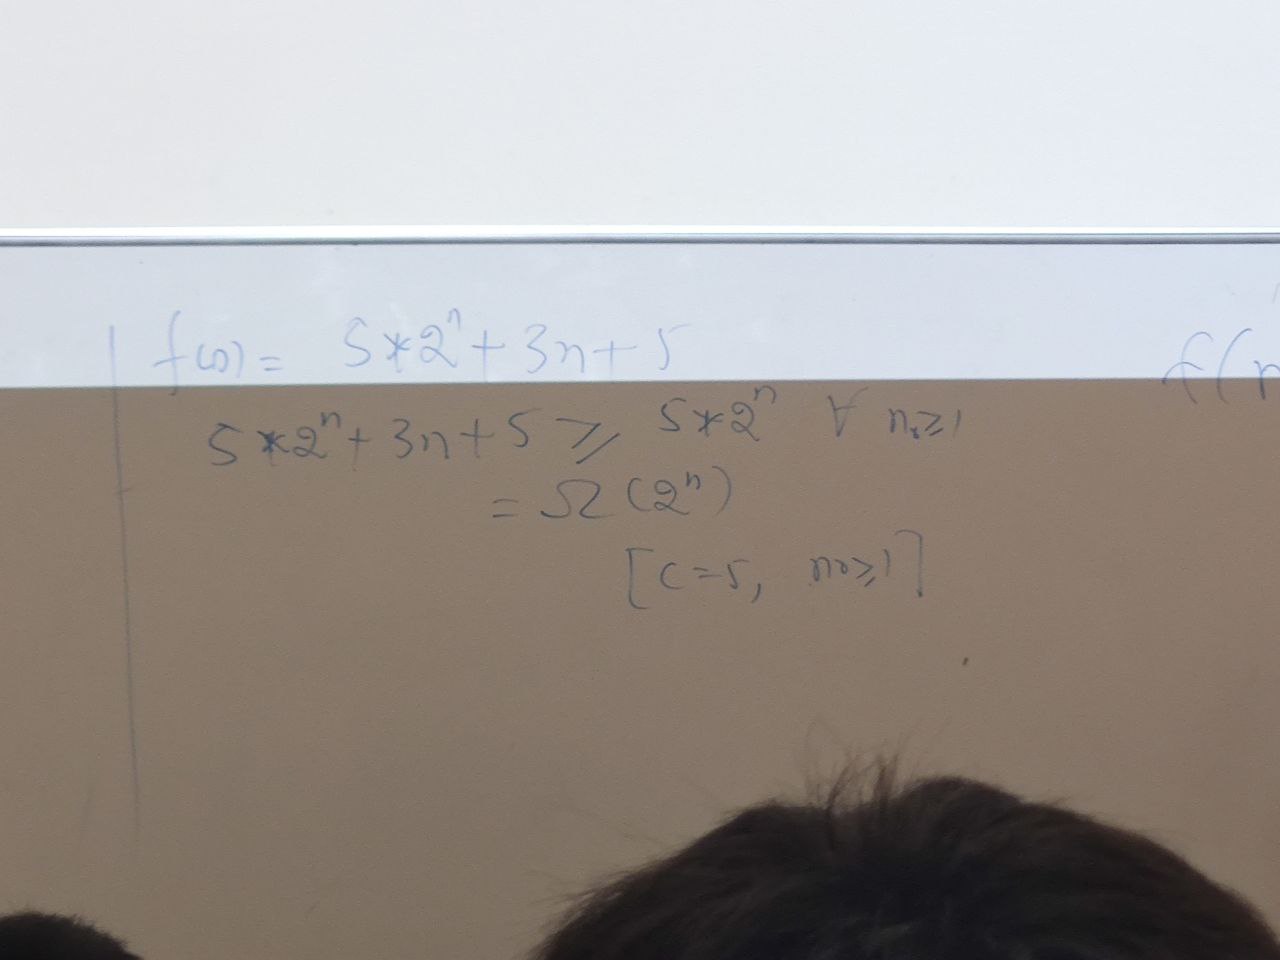 f(n) = 5*2ⁿ + 3n + 5
5*2ⁿ + 3n + 5 ≥ 5*2ⁿ ∀ n≥1
= Ω(2ⁿ)
[c=5, n₀≥1]
f(n